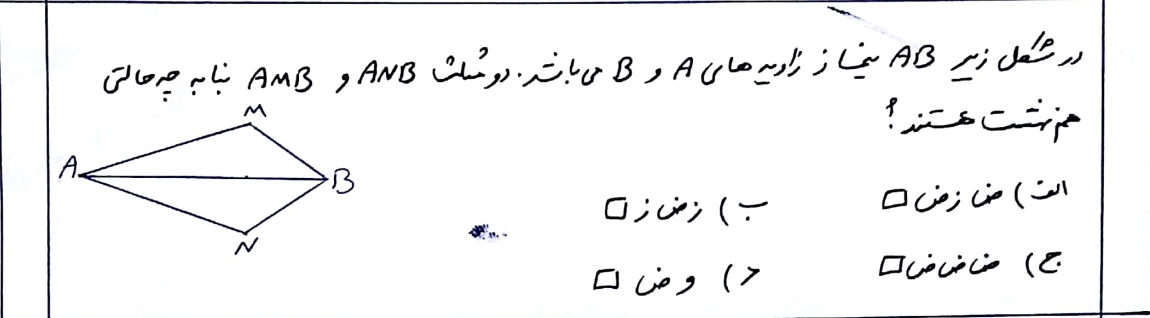 در شکل زیر AB نیمساز زاویه های A و B می باشد. دو مثلث ANB و AMB بنا به چه حالتی
هم نهشت هستند؟
M
A
B
N
الف) ض ز ض □
ب) ز ض ز □
ج) ض ض ض □
د) و ض □